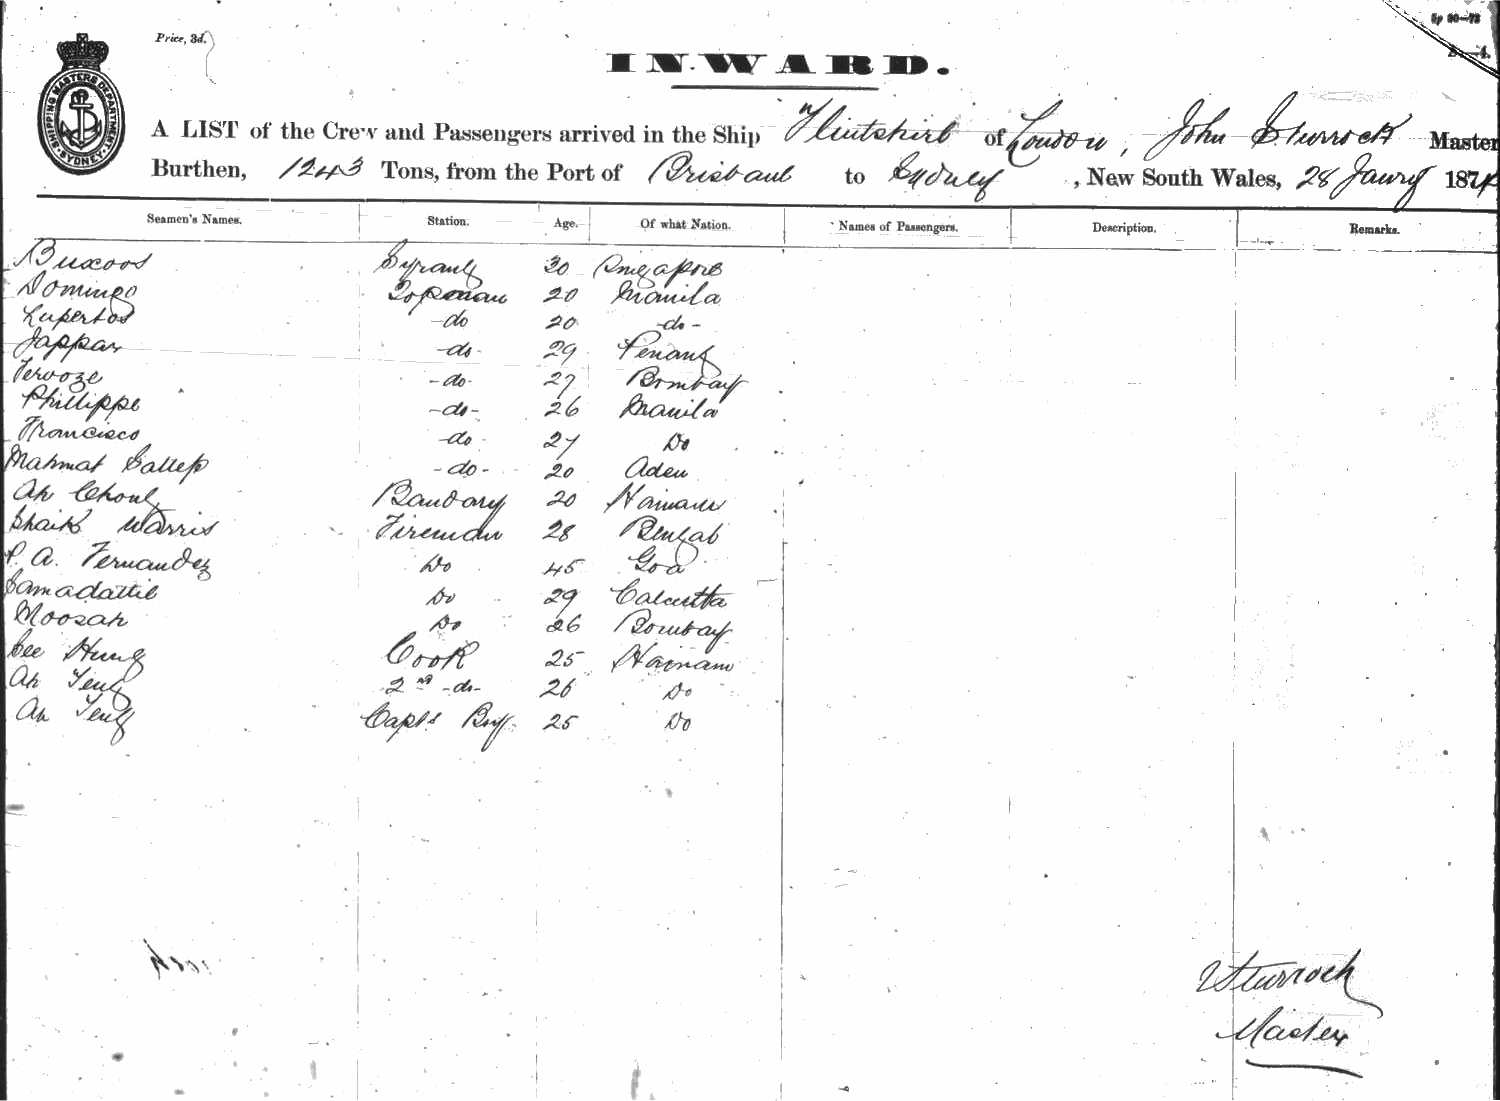 5p 90—73
Price, 3d.
INWARD.
SHIPPING MASTERS DEPARTMENT SYDNEY
A LIST of the Crew and Passengers arrived in the Ship Flintshire of London, John Sturrock Master
Burthen, 1243 Tons, from the Port of Brisbane to Sydney, New South Wales, 28 Janry 1874
Seamen's Names. Station. Age. Of what Nation. Names of Passengers. Description. Remarks.
Buxoos Syrang 30 Singapore
Domingo Topman 20 Manila
Lupertos -do 20 -do-
Jappar -do- 29 Penang
Fervoze -do- 27 Bombay
Phillippe -do- 26 Manila
Francisco -do- 27 Do
Mahmat Salleh -do- 20 Aden
Ah Chong Bandary 20 Hainam
Shaik Warris Fireman 28 Bengal
P. A. Fernandez Do 45 Goa
Samadattie Do 29 Calcutta
Moosah Do 26 Bombay
See Hung Cook 25 Hainam
Ah Teng 2nd -do- 26 Do
Ah Teng Capts Boy 25 Do
J Sturrock
Master